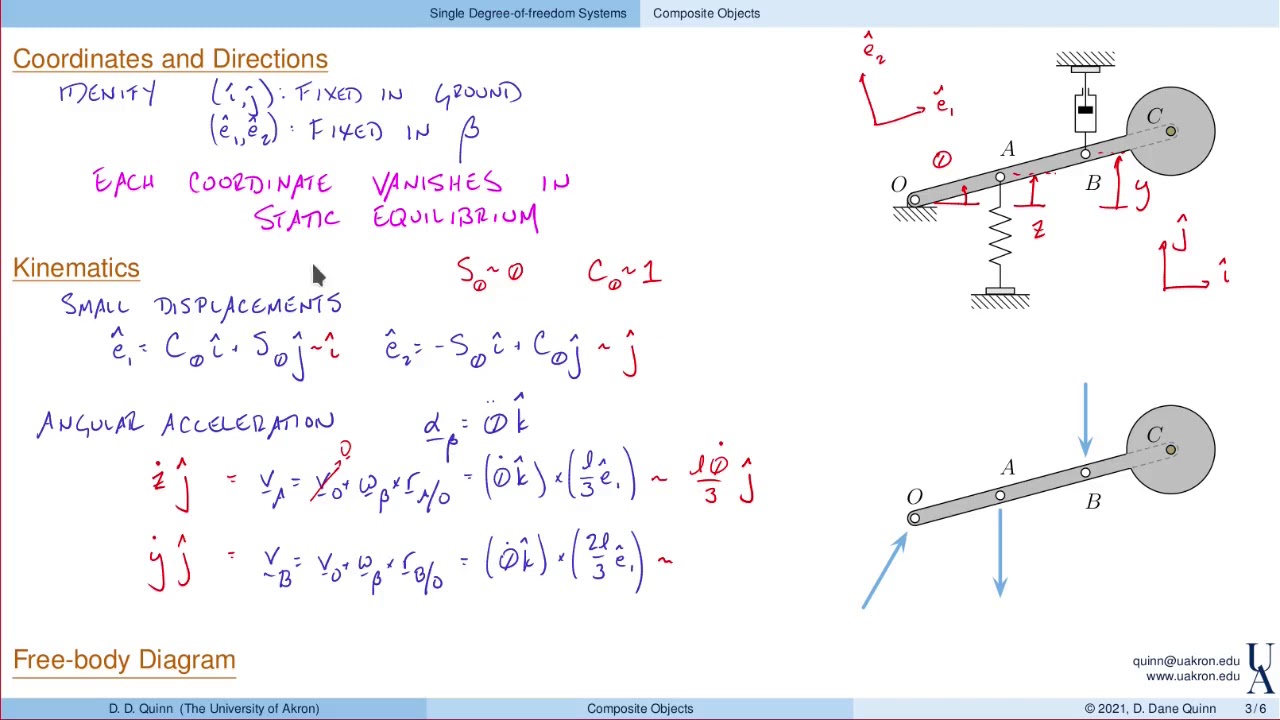 Single Degree-of-freedom Systems Composite Objects
Coordinates and Directions
IDENIFY (î, ĵ): FIXED IN GROUND
(ê₁, ê₂): FIXED IN β
EACH COORDINATE VANISHES IN
STATIC EQUILIBRIUM
Kinematics
S_θ ~ θ C_θ ~ 1
SMALL DISPLACEMENTS
ê₁ = C_θ î + S_θ ĵ ~ î ê₂ = -S_θ î + C_θ ĵ ~ ĵ
ANGULAR ACCELERATION α_β = θ̈ k̂
ż ĵ = v_A = v_O + ω_β × r_A/O = (θ̇ k̂) × (l/3 ê₁) ~ lθ̇/3 ĵ
0
ẏ ĵ = v_B = v_O + ω_β × r_B/O = (θ̇ k̂) × (2l/3 ê₁) ~
Free-body Diagram
ê₂
ê₁
C
θ
A
O
B
y
z
ĵ
î
C
A
O
B
quinn@uakron.edu
www.uakron.edu
UA
D. D. Quinn (The University of Akron) Composite Objects © 2021, D. Dane Quinn 3 / 6